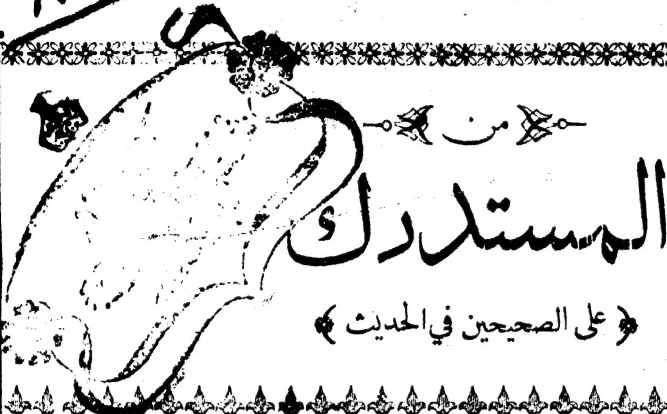 من
المستدرك
﴿ على الصحيحين في الحديث ﴾